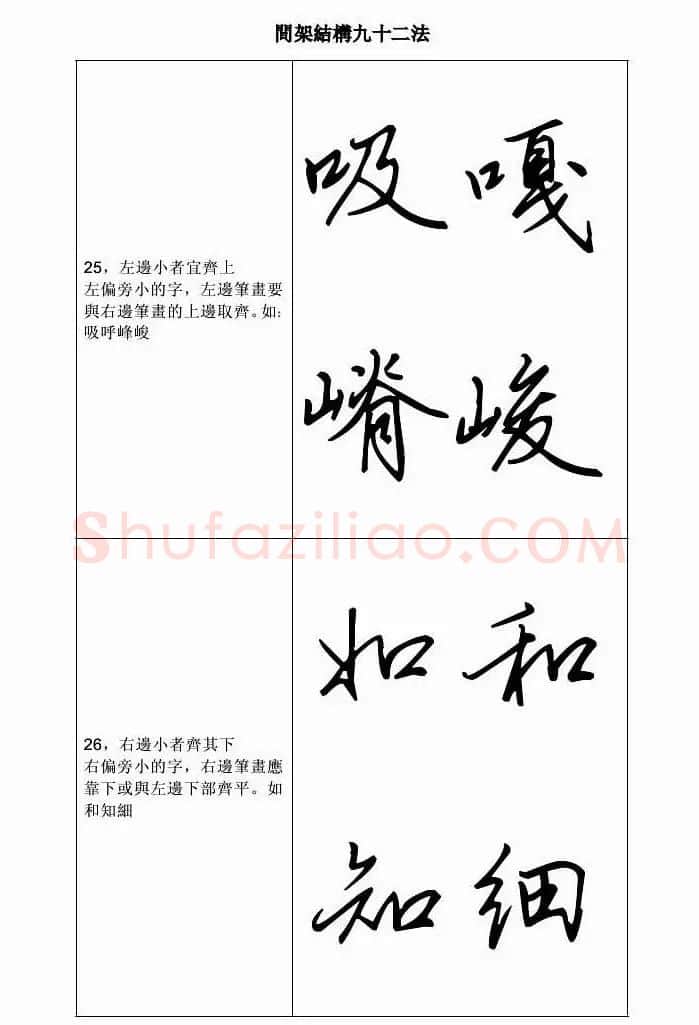 間架結構九十二法
25，左邊小者宜齊上
左偏旁小的字，左邊筆畫要
與右邊筆畫的上邊取齊。如:
吸呼峰峻
吸 嘎
嵴 峻
Shufaziliao.COM
26，右邊小者齊其下
右偏旁小的字，右邊筆畫應
靠下或與左邊下部齊平。如
和知細
如 和
知 細